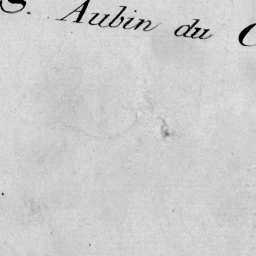 S. Aubin du